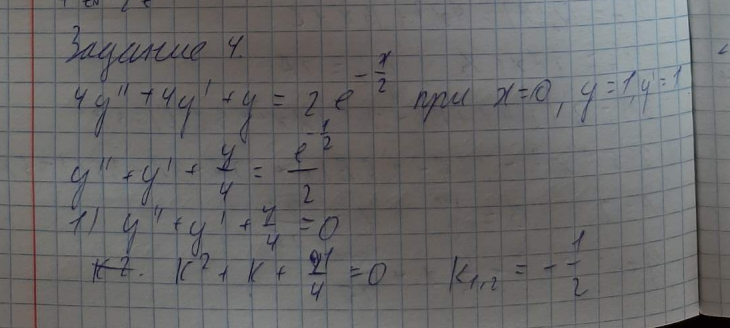 Задание 4.
4y'' + 4y' + y = 2e^{-x/2} при x=0, y=1, y'=1
y'' + y' + y/4 = e^{-1/2}/2
1) y'' + y' + y/4 = 0
k² + k + 1/4 = 0 k₁,₂ = -1/2